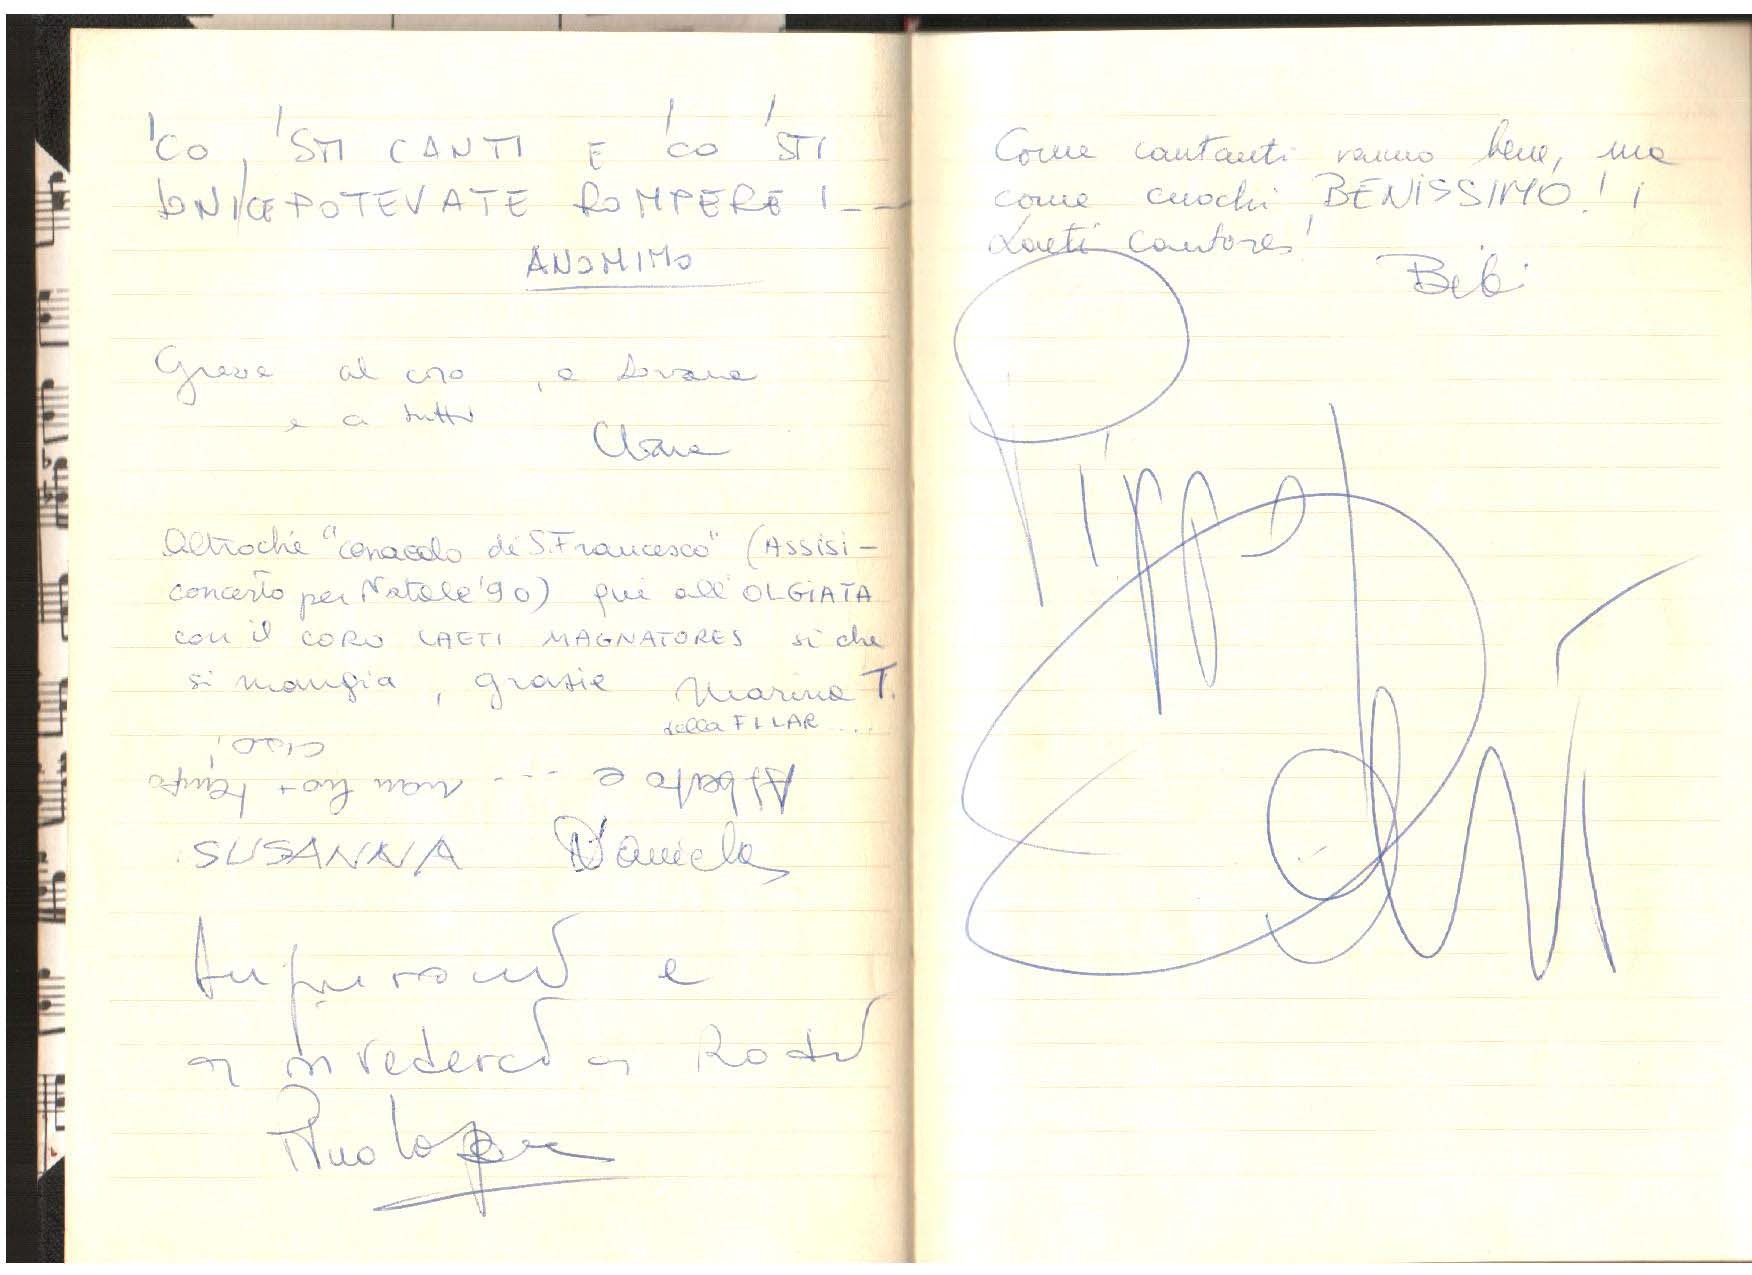 'CO 'STI CANTI E 'CO 'STI
ROMPERE !---
ANONIMO
al coro, a
e a tutti
Altroché "cenacolo di S. Francesco" (ASSISI-
concerto per Natale '90) qui all'OLGIATA
con il CORO LAETI MAGNATORES si che
si mangia, grazie Marina T.
della FILAR....
ciao!
Alberto e --- non ho + tempo
SUSANNA Daniela
Auguroni e
a rivederci a
Come cantanti vanno bene, ma
come cuochi BENISSIMO!!
Laeti cantores!
Bibi
Pippo
Edvi